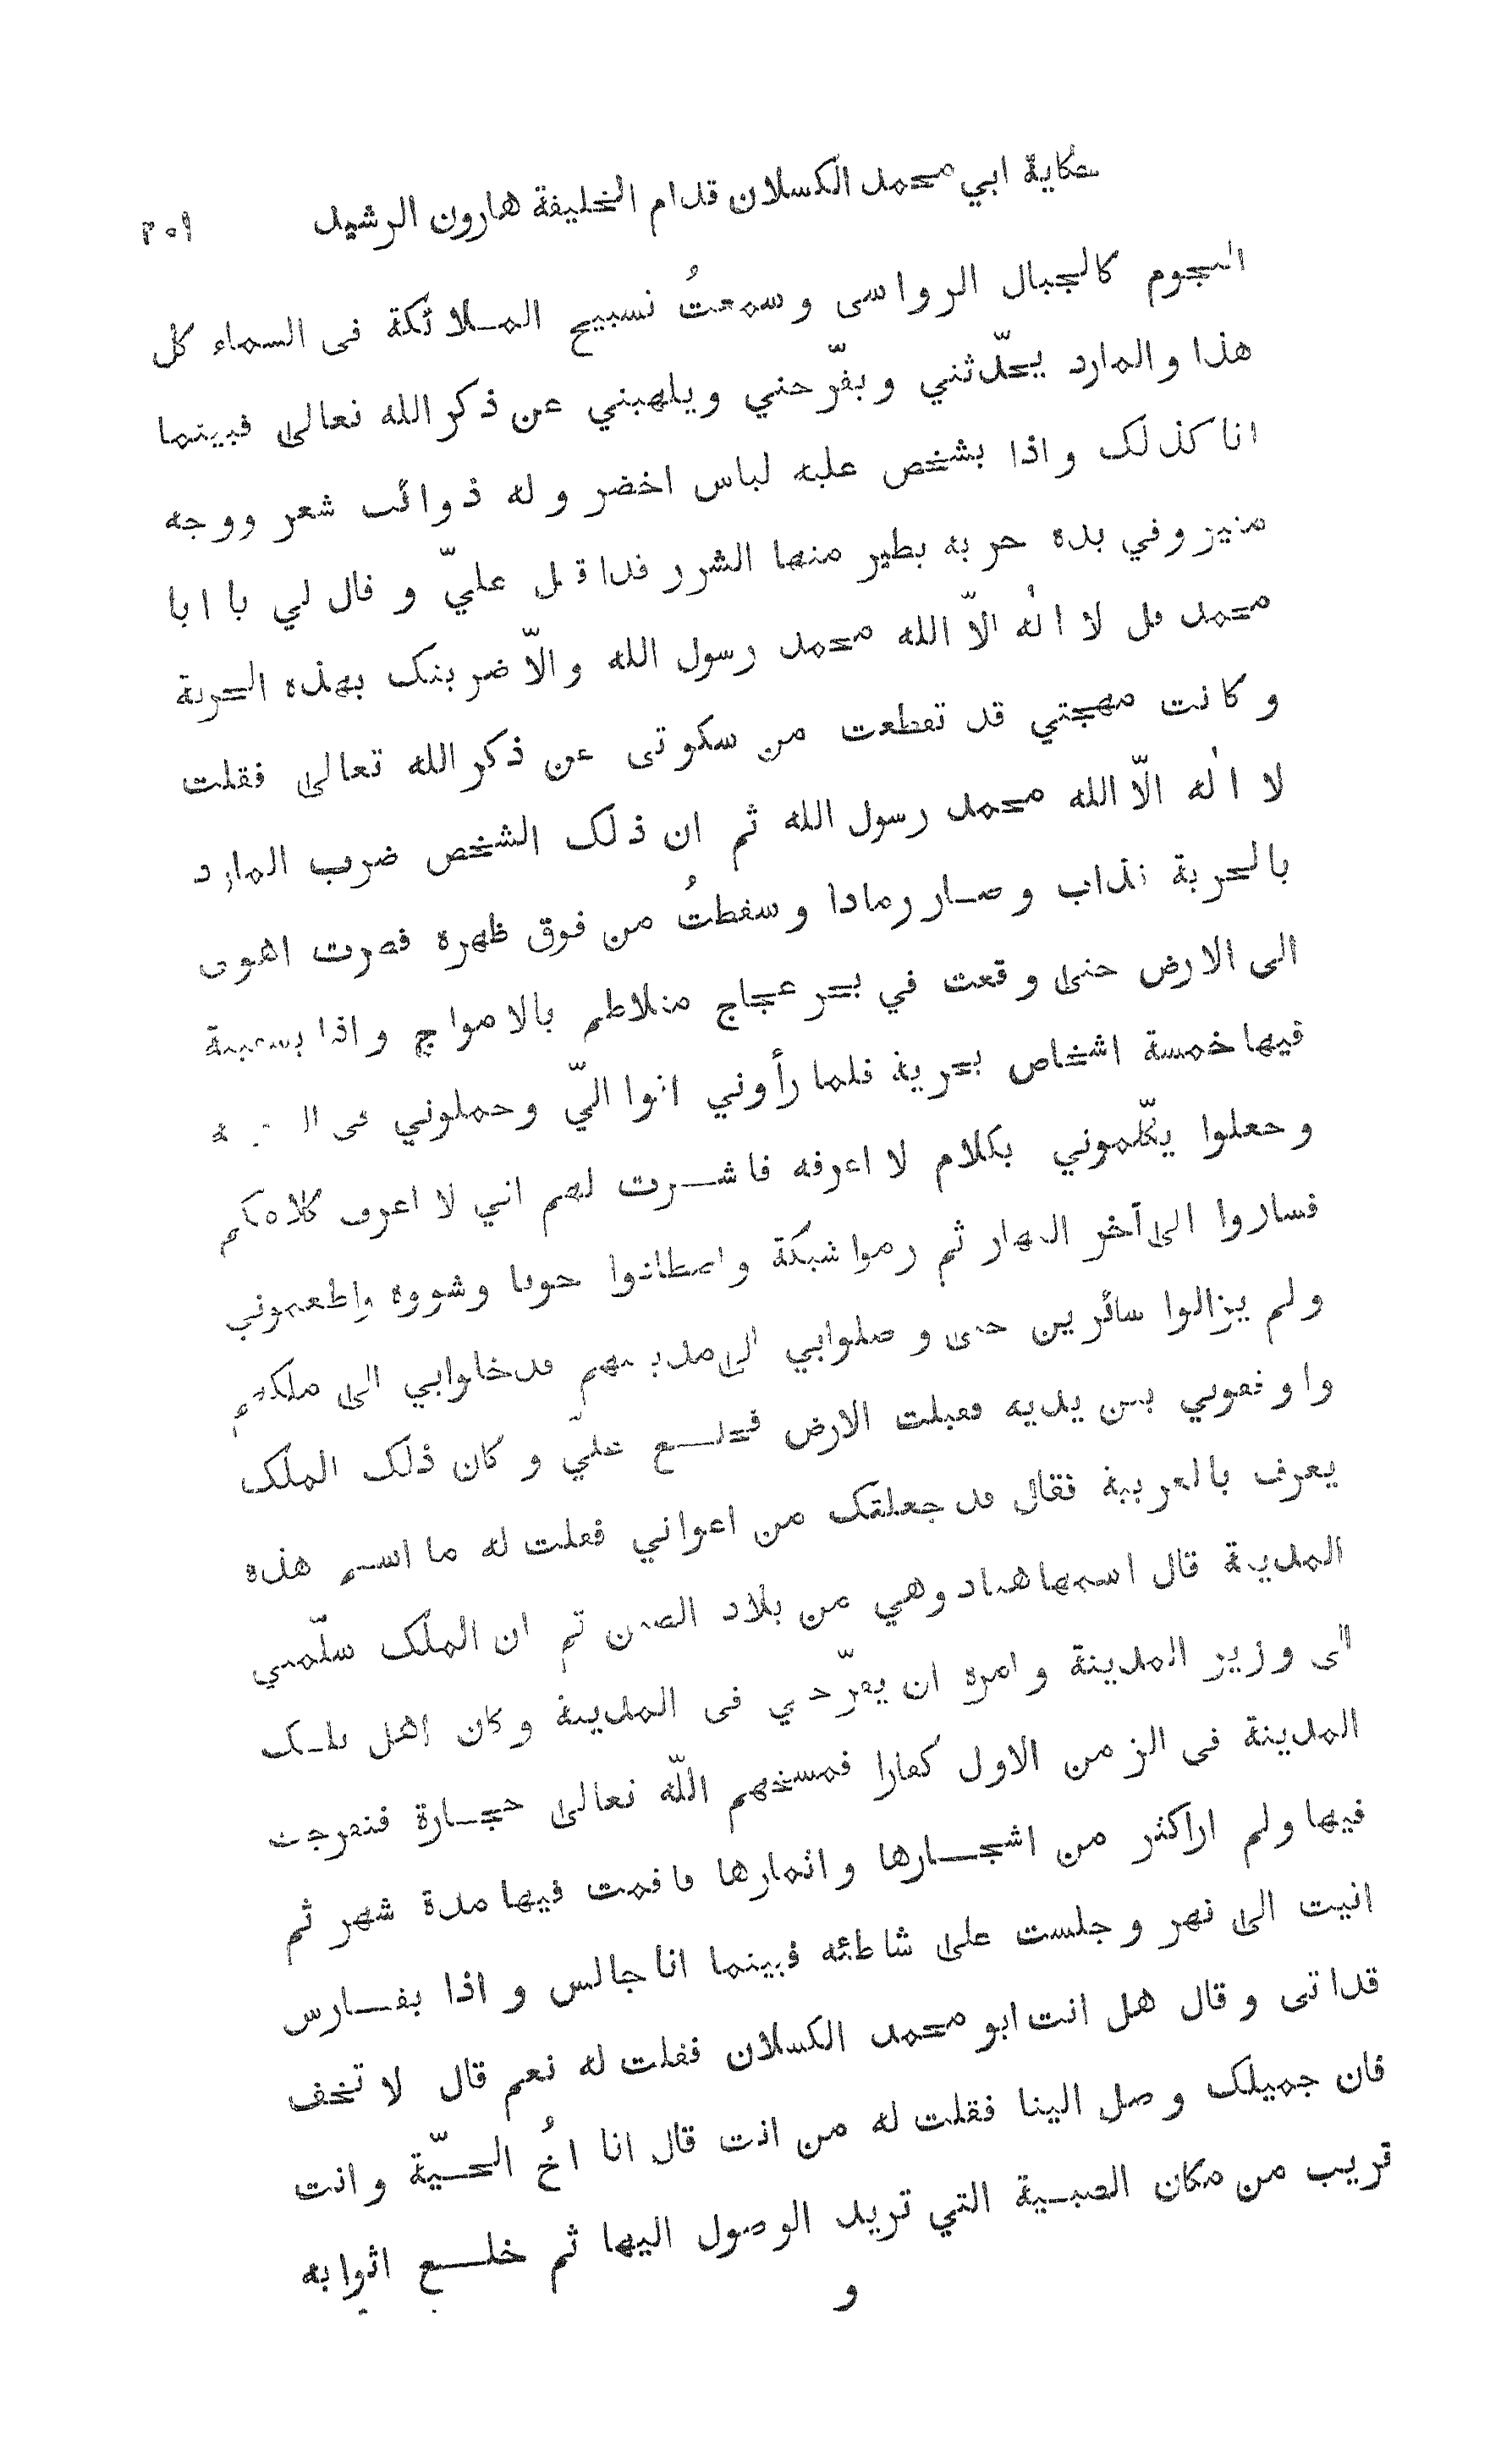 حكاية ابي محمد الكسلان قدام الخليفة هارون الرشيد ٣٠٩
النجوم كالجبال الرواسى وسمعتُ تسبيح الملائكة فى السماء كل
هذا والمارد يحدّثني ويفرّحني ويلهيني عن ذكر الله تعالى فبينما
انا كذلك واذا بشخص عليه لباس اخضر وله ذوائب شعر ووجه
منير وفي يده حربه يطير منها الشرر قد اقبل عليّ وقال لي يا ابا
محمد قل لا اله الاّ الله محمد رسول الله والاّ ضربتك بهذه الحربة
وكانت مهجتي قد تقطعت من سكوتى عن ذكر الله تعالى فقلت
لا اله الاّ الله محمد رسول الله ثم ان ذلك الشخص ضرب المارد
بالحربة فذاب وصار رمادا وسقطتُ من فوق ظهره فصرت اهوى
الى الارض حتى وقعت في بحر عجاج متلاطم بالامواج واذا بسفينة
فيها خمسة اشخاص بحرية فلما رأوني اتوا اليّ وحملوني فى
وجعلوا يكلّموني بكلام لا اعرفه فاشرت لهم اني لا اعرف كلامكم
فساروا الى آخر النهار ثم رموا شبكة واصطادوا حوتا وشووه واطعموني
ولم يزالوا سائرين حتى وصلوابي الى مدينتهم فدخلوابي الى ملكهم
واوقفوني بين يديه فقبلت الارض فخلع عليّ وكان ذلك الملك
يعرف بالعربية فقال قد جعلتك من اعواني فقلت له ما اسم هذه
المدينة قال اسمها هناد وهي من بلاد الصين ثم ان الملك سلّمني
الى وزير المدينة وامره ان يفرّجني فى المدينة وكان اهل تلك
المدينة فى الزمن الاول كفارا فمسخهم اللّه تعالى حجارة فتفرجت
فيها ولم ار اكثر من اشجارها واثمارها فاقمت فيها مدة شهر ثم
اتيت الى نهر وجلست على شاطئه فبينما انا جالس واذا بفارس
قد اتى وقال هل انت ابو محمد الكسلان فقلت له نعم قال لا تخف
فان جميلك وصل الينا فقلت له من انت قال انا اخُ الحيّة وانت
قريب من مكان الصبية التي تريد الوصول اليها ثم خلع اثوابه
و